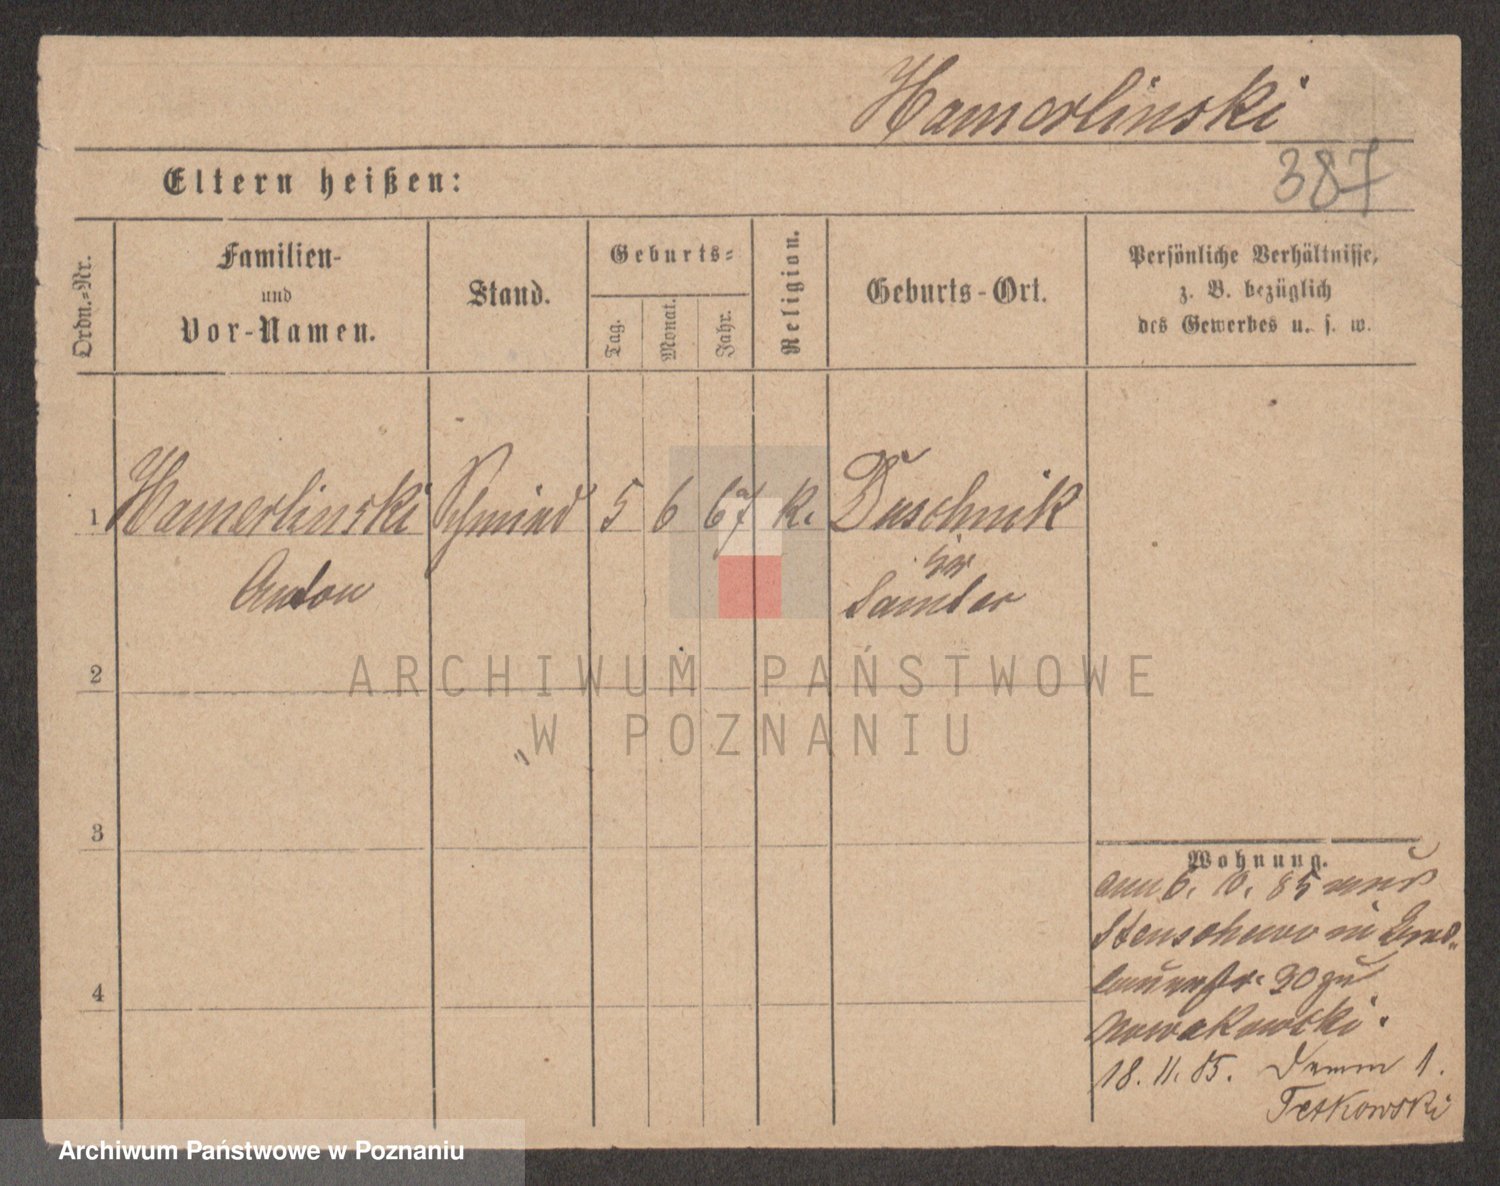 Hamerlinski
387
Eltern heißen:
Ordn.=Nr.
Familien-
und
Vor-Namen.
Stand.
Geburts=
Tag.
Monat.
Jahr.
Religion.
Geburts-Ort.
Persönliche Verhältnisse,
z. B. bezüglich
des Gewerbes u. s. w.
1 Hamerlinski Schmied 5 6 67 k. Duschnik
Anton
Samter
2
3
4
ARCHIWUM PAŃSTWOWE
W POZNANIU
Wohnung.
6. 10. 85
Stenschewo in
30 zu
Nowakowski.
18. 11. 85. Damm 1.
Tetkowski
Archiwum Państwowe w Poznaniu